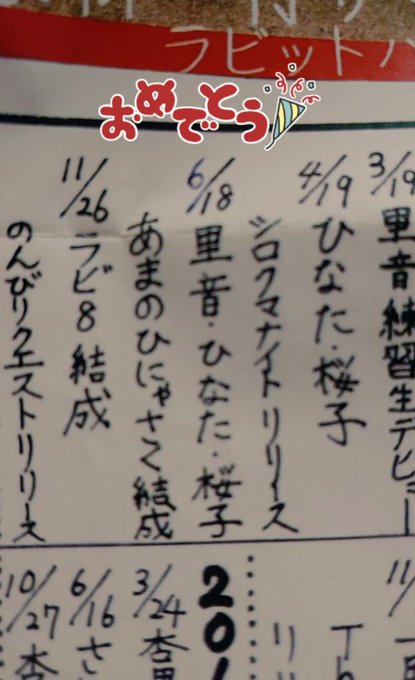 ラビットハ
おめでとう
3/19
里音練習生デビュー
4/19
ひなた・桜子
シロクマナイトリリース
6/18
里音・ひなた・桜子
あまのひにゃさく結成
11/26
ラビ8結成
のんびりクエストリリース
11/
リリ
201
3/24
杏里
6/16
さ
10/27
杏